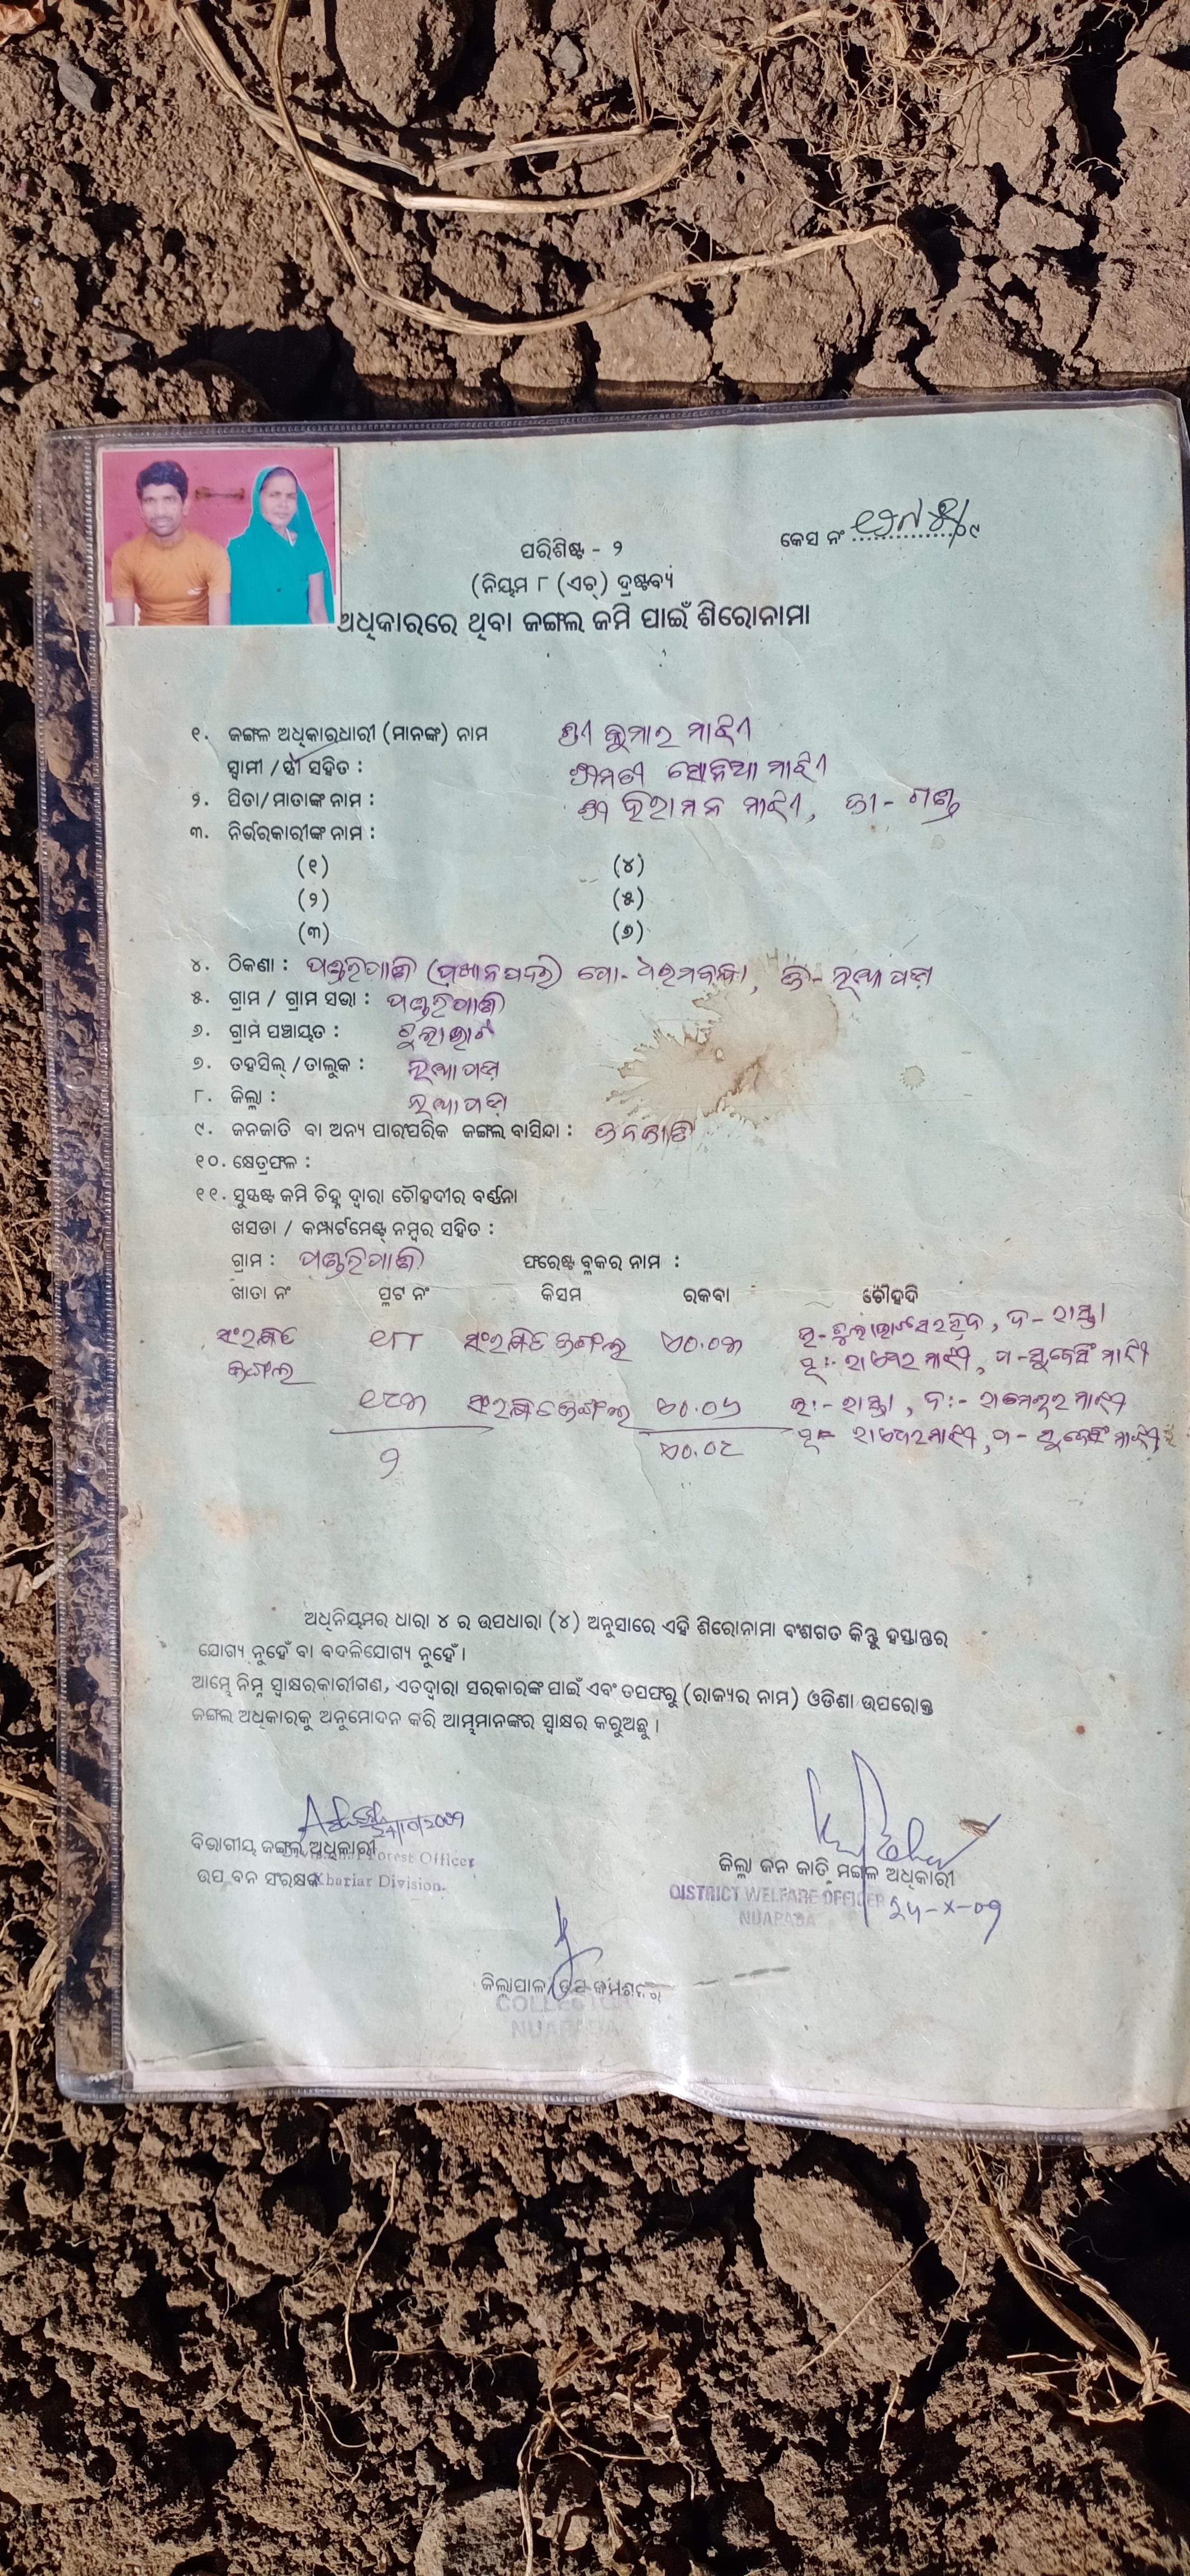 କେସ ନଂ ........../୦୯
ପରିଶିଷ୍ଟ - ୨
(ନିୟମ ୮ (ଏଚ୍) ଦ୍ରଷ୍ଟବ୍ୟ
ଅଧିକାରରେ ଥିବା ଜଙ୍ଗଲ ଜମି ପାଇଁ ଶିରୋନାମା
୧. ଜଙ୍ଗଲ ଅଧିକାରଧାରୀ (ମାନଙ୍କ) ନାମ ଶ୍ରୀ କୁମାର ମାଝୀ
ସ୍ୱାମୀ / ସ୍ତ୍ରୀ ସହିତ : ଶ୍ରୀମତୀ ସୋନିଆ ମାଝୀ
୨. ପିତା/ମାତାଙ୍କ ନାମ : ଶ୍ରୀ ହିରାମନ ମାଝୀ, ଜା - ଗଣ୍ଡ
୩. ନିର୍ଭରକାରୀଙ୍କ ନାମ :
(୧) (୪)
(୨) (୫)
(୩) (୬)
୪. ଠିକଣା : ପଣ୍ଡରିପାଣି (ପ୍ରଧାନପଦର) ପୋ- ଧରମବନ୍ଧା, ଜି - ନୂଆପଡ଼ା
୫. ଗ୍ରାମ / ଗ୍ରାମ ସଭା : ପଣ୍ଡରିପାଣି
୬. ଗ୍ରାମ ପଞ୍ଚାୟତ : ଚୁଲାଭାଟ
୭. ତହସିଲ୍ / ତାଲୁକ : ନୂଆପଡ଼ା
୮. ଜିଲ୍ଲା : ନୂଆପଡ଼ା
୯. ଜନଜାତି ବା ଅନ୍ୟ ପାରଂପରିକ ଜଙ୍ଗଲ ବାସିନ୍ଦା : ଜନଜାତି
୧୦. କ୍ଷେତ୍ରଫଳ :
୧୧. ସୁସ୍ପଷ୍ଟ ଜମି ଚିହ୍ନ ଦ୍ୱାରା ଚୌହଦୀର ବର୍ଣ୍ଣନା
ଖସଡା / କମ୍ପାର୍ଟମେଣ୍ଟ୍ ନମ୍ବର ସହିତ :
ଗ୍ରାମ : ପଣ୍ଡରିପାଣି ଫରେଷ୍ଟ ବ୍ଲକର ନାମ :
ଖାତା ନଂ ପ୍ଲଟ ନଂ କିସମ ରକବା ଚୌହଦି
ସଂରକ୍ଷିତ ସଂରକ୍ଷିତ ଜଙ୍ଗଲ ଏ୦.୦୩ ଉ - ଚୁଲାଭାଟ ସରହଦ, ଦ - ରାସ୍ତା
ଜଙ୍ଗଲ ମାଝୀ
ସଂରକ୍ଷିତ ଜଙ୍ଗଲ ଉ:- ରାସ୍ତା, ଦ:- ରାମେଶ୍ୱର ମାଝୀ
୨ ମାଝୀ
ଅଧିନିୟମର ଧାରା ୪ ର ଉପଧାରା (୪) ଅନୁସାରେ ଏହି ଶିରୋନାମା ବଂଶଗତ କିନ୍ତୁ ହସ୍ତାନ୍ତର
ଯୋଗ୍ୟ ନୁହେଁ ବା ବଦଳିଯୋଗ୍ୟ ନୁହେଁ ।
ଆମ୍ଭେ ନିମ୍ନ ସ୍ୱାକ୍ଷରକାରୀଗଣ, ଏତଦ୍ୱାରା ସରକାରଙ୍କ ପାଇଁ ଏବଂ ତପଫରୁ (ରାଜ୍ୟର ନାମ) ଓଡିଶା ଉପରୋକ୍ତ
ଜଙ୍ଗଲ ଅଧିକାରକୁ ଅନୁମୋଦନ କରି ଆମ୍ଭମାନଙ୍କର ସ୍ୱାକ୍ଷର କରୁଅଛୁ ।
ବିଭାଗୀୟ ଜଙ୍ଗଲ ଅଧିକାରୀ
Forest Officer
ଉପ ବନ ସଂରକ୍ଷକ
Khariar Division.
ଜିଲ୍ଲା ଜନ ଜାତି ମଙ୍ଗଳ ଅଧିକାରୀ
DISTRICT WELFARE OFFICER
NUAPADA
୨୪-X-୦୨
ଜିଲ୍ଲାପାଳ/ଉପ କମିଶନର
COLLECTOR
NUAPADA